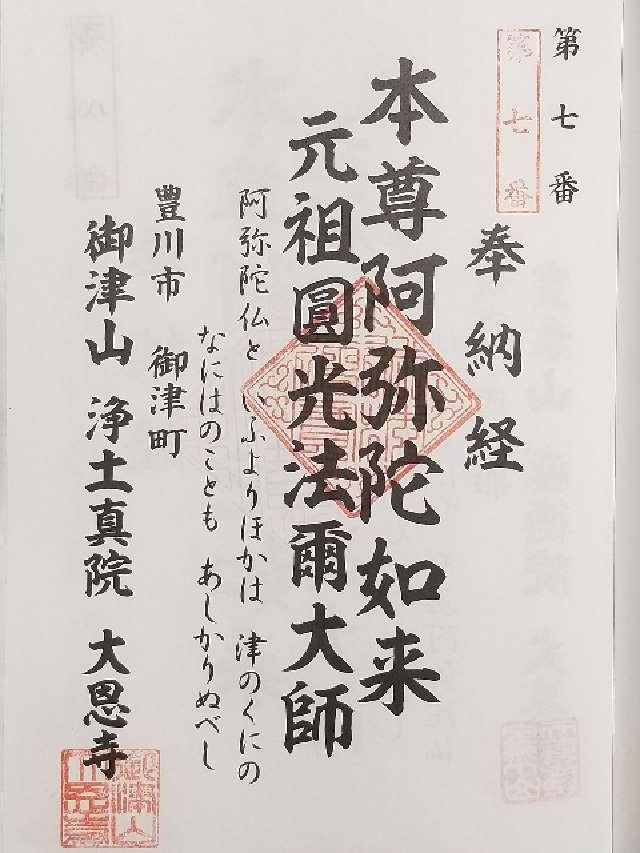 第七番
第七番
奉納経
本尊阿弥陀如来
元祖圓光法爾大師
阿弥陀仏と いふよりほかは 津のくにの
なにはのことも あしかりぬべし
豊川市 御津町
御津山 浄土真院 大恩寺